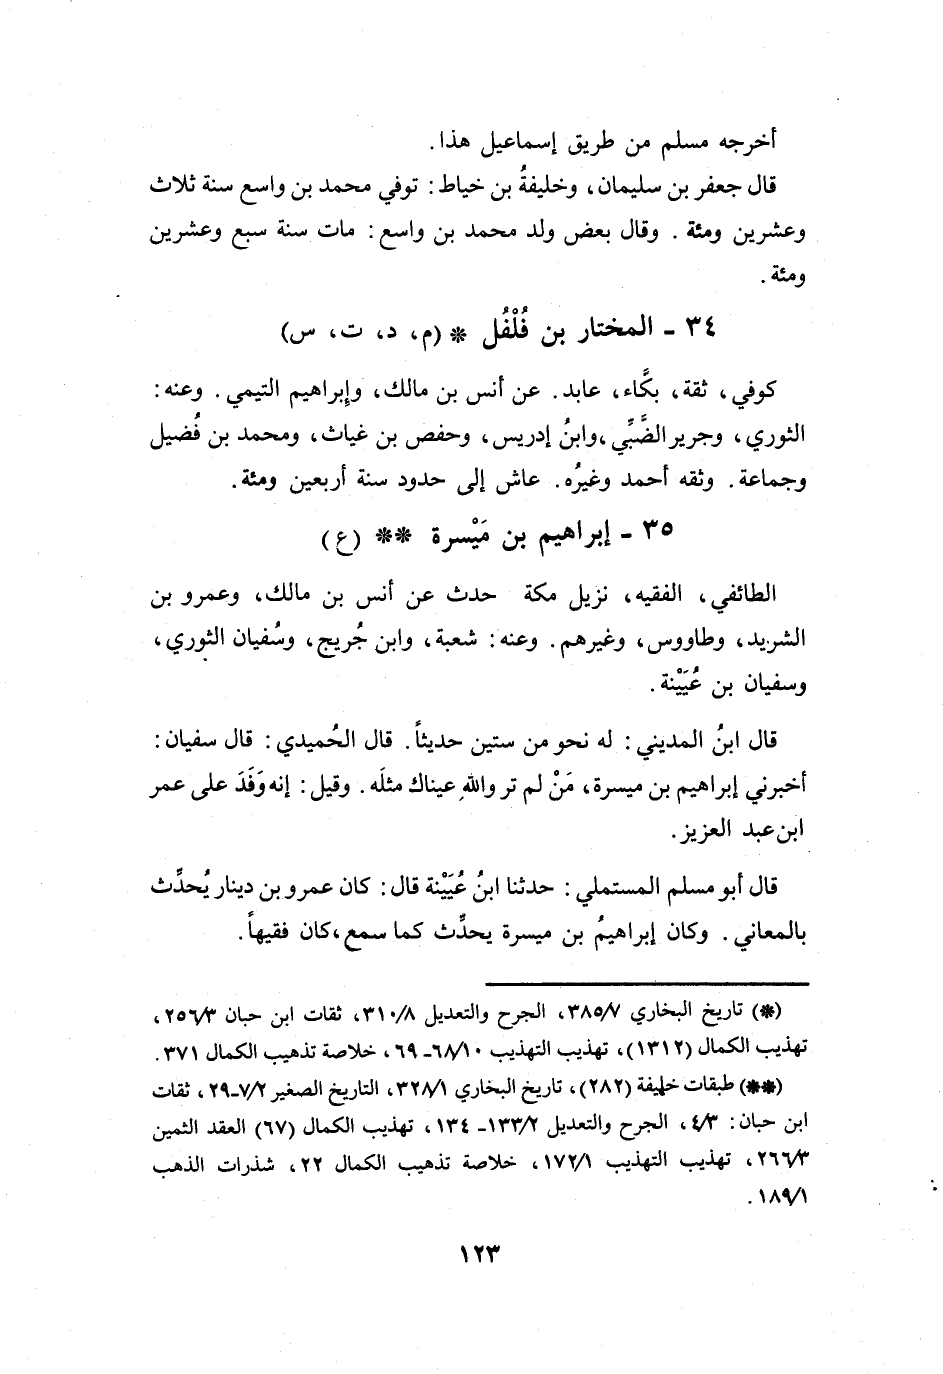 أخرجه مسلم من طريق إسماعيل هذا .
قال جعفر بن سليمان، وخليفةُ بن خياط : توفي محمد بن واسع سنة ثلاث
وعشرين ومئة . وقال بعض ولد محمد بن واسع : مات سنة سبع وعشرين
ومئة .
٣٤ ـ المختار بن فُلْفُل * (م، د، ت، س)
كوفي، ثقة، بكَّاء، عابد. عن أنس بن مالك، وإبراهيم التيمي. وعنه :
الثوري، وجرير الضَّبِّي، وابنُ إدريس، وحفص بن غياث، ومحمد بن فُضيل
وجماعة . وثقه أحمد وغيرُه. عاش إلى حدود سنة أربعين ومئة .
٣٥ ـ إبراهيم بن مَيْسرة ** (ع)
الطائفي، الفقيه، نزيل مكة حدث عن أنس بن مالك، وعمرو بن
الشريد، وطاووس، وغيرهم. وعنه : شعبة، وابن جُريج، وسُفيان الثوري،
وسفيان بن عُيَيْنة .
قال ابنُ المديني : له نحو من ستين حديثاً. قال الحُميدي : قال سفيان :
أخبرني إبراهيم بن ميسرة، مَنْ لم تر واللهِ عيناك مثلَه. وقيل : إنه وَفَدَ على عمر
ابن عبد العزيز.
قال أبو مسلم المستملي : حدثنا ابنُ عُيَيْنة قال : كان عمرو بن دينار يُحدِّث
بالمعاني . وكان إبراهيمُ بن ميسرة يحدِّث كما سمع، كان فقيهاً.
(*) تاريخ البخاري ٣٨٥/٧، الجرح والتعديل ٣١٠/٨، ثقات ابن حبان ٢٥٦/٣،
تهذيب الكمال (١٣١٢)، تهذيب التهذيب ٦٨/١٠ـ ٦٩، خلاصة تذهيب الكمال ٣٧١.
(**) طبقات خليفة (٢٨٢)، تاريخ البخاري ٣٢٨/١، التاريخ الصغير ٧/٢ـ٢٩، ثقات
ابن حبان: ٤/٣، الجرح والتعديل ١٣٣/٢ـ ١٣٤، تهذيب الكمال (٦٧) العقد الثمين
٢٦٦/٣، تهذيب التهذيب ١٧٢/١، خلاصة تذهيب الكمال ٢٢، شذرات الذهب
١٨٩/١.
١٢٣